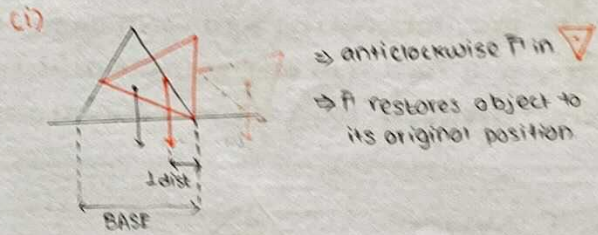 (i)
⇒ anticlockwise Γ⃗ in
⇒ Γ⃗ restores object to
its original position
⊥dist
BASE